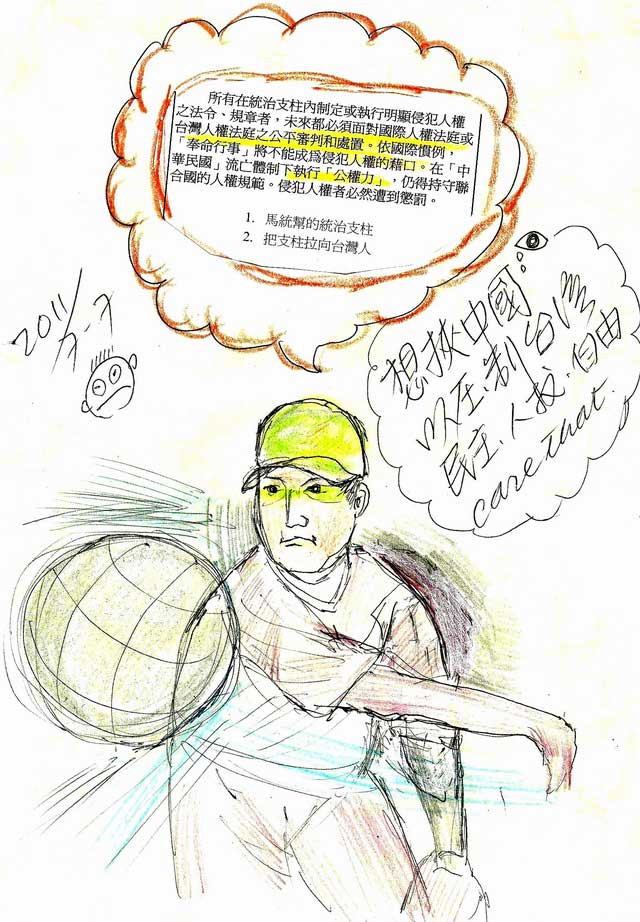 所有在統治支柱內制定或執行明顯侵犯人權
之法令、規章者，未來都必須面對國際人權法庭或
台灣人權法庭之公平審判和處置。依國際慣例，
「奉命行事」將不能成為侵犯人權的藉口。在「中
華民國」流亡體制下執行「公權力」，仍得持守聯
合國的人權規範。侵犯人權者必然遭到懲罰。
1. 馬統幫的統治支柱
2. 把支柱拉向台灣人
2011/
想挾中國
以在制台灣
民主.人权.自由
care that.